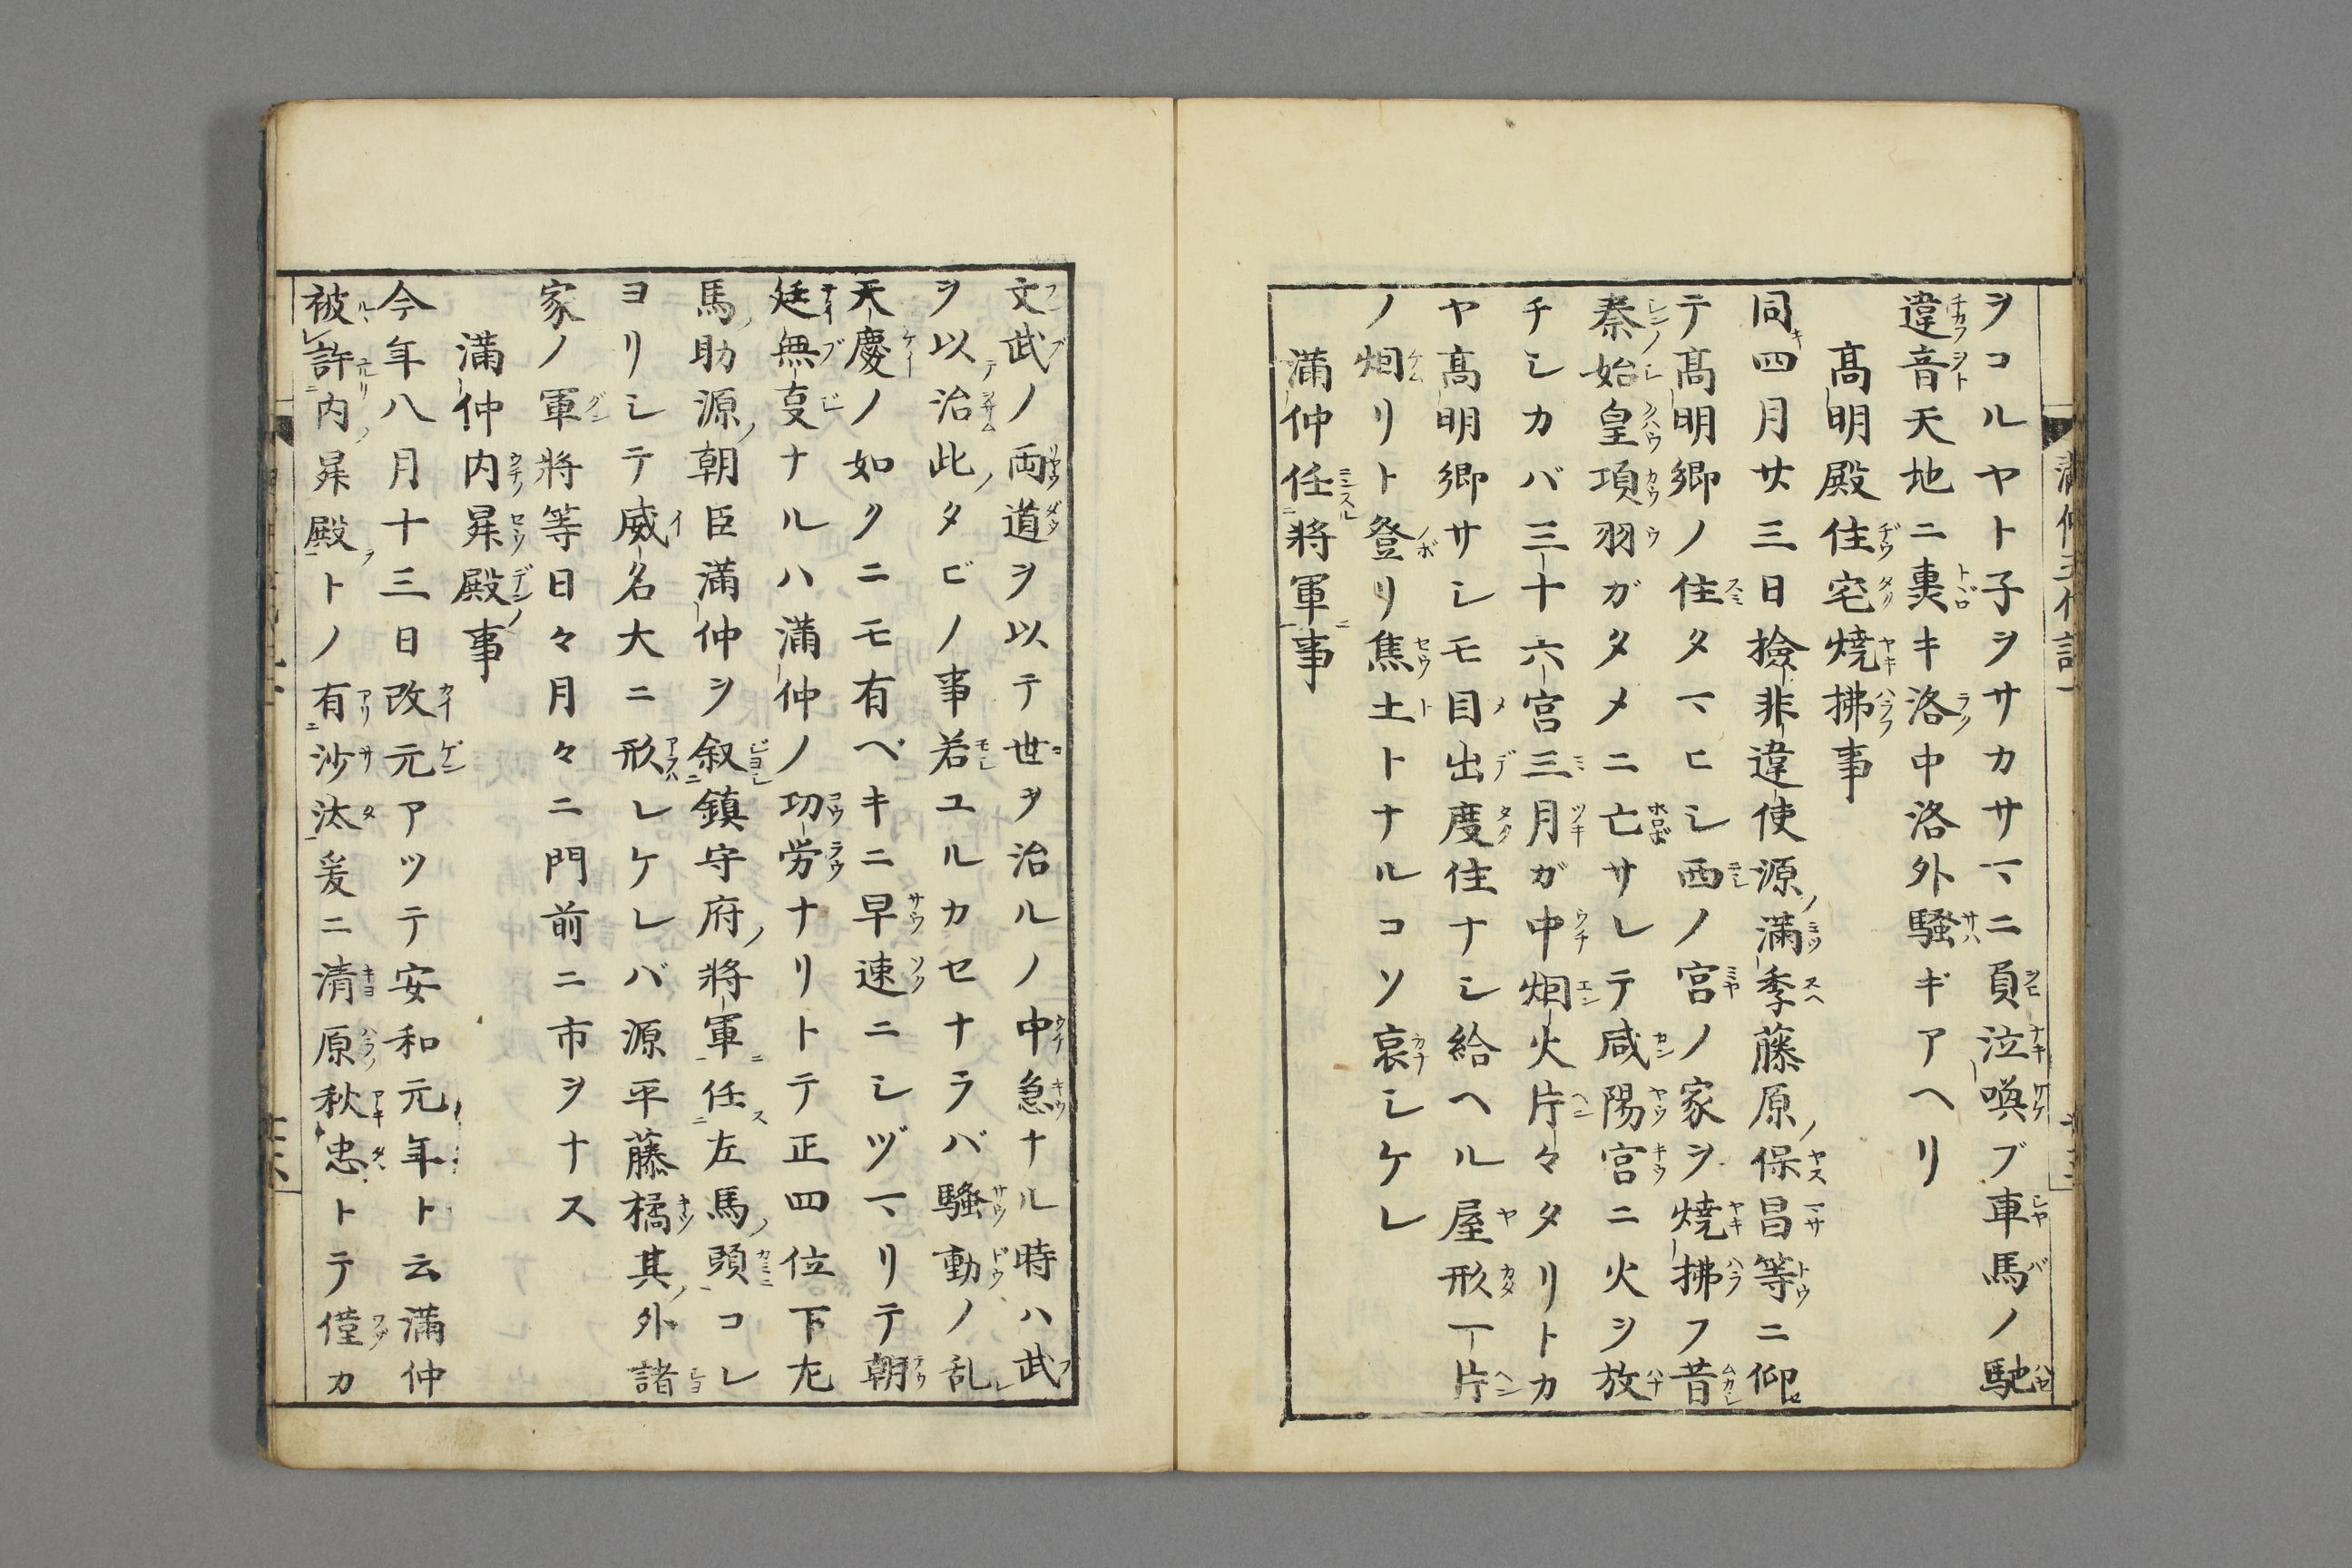 ヲコルヤト子ヲサカサマニ負泣喚ブ車馬ノ馳
違音天地ニ裏キ洛中洛外騒ギアヘリ
高明殿住宅焼拂事
同四月廿三日撿非違使源満季藤原保昌等ニ仰
テ髙明卿ノ住タマヒシ西ノ宮ノ家ヲ焼拂フ昔
秦始皇項羽ガタメニ亡サレテ咸陽宮ニ火ヲ放
チシカバ三十六宮三月ガ中烟火片々タリトカ
ヤ髙明卿サシモ目出度住ナシ給ヘル屋形一片
ノ烟リト登リ焦土トナルコソ哀シケレ
満仲任將軍事
文武ノ両道ヲ以テ世ヲ治ルノ中急ナル時ハ武
ヲ以治此タビノ事若ユルカセナラバ騒動ノ乱
天慶ノ如クニモ有ベキニ早速ニシヅマリテ朝
廷無叓ナルハ満仲ノ功労ナリトテ正四位下左
馬助源朝臣満仲ヲ叙鎮守府將軍任左馬頭コレ
ヨリシテ威名大ニ形レケレバ源平藤橘其外諸
家ノ軍將等日々月々ニ門前ニ市ヲナス
満仲内昇殿事
今年八月十三日改元アツテ安和元年ト云満仲
被許内昇殿トノ有沙汰爰ニ清原秋忠トテ僅カ